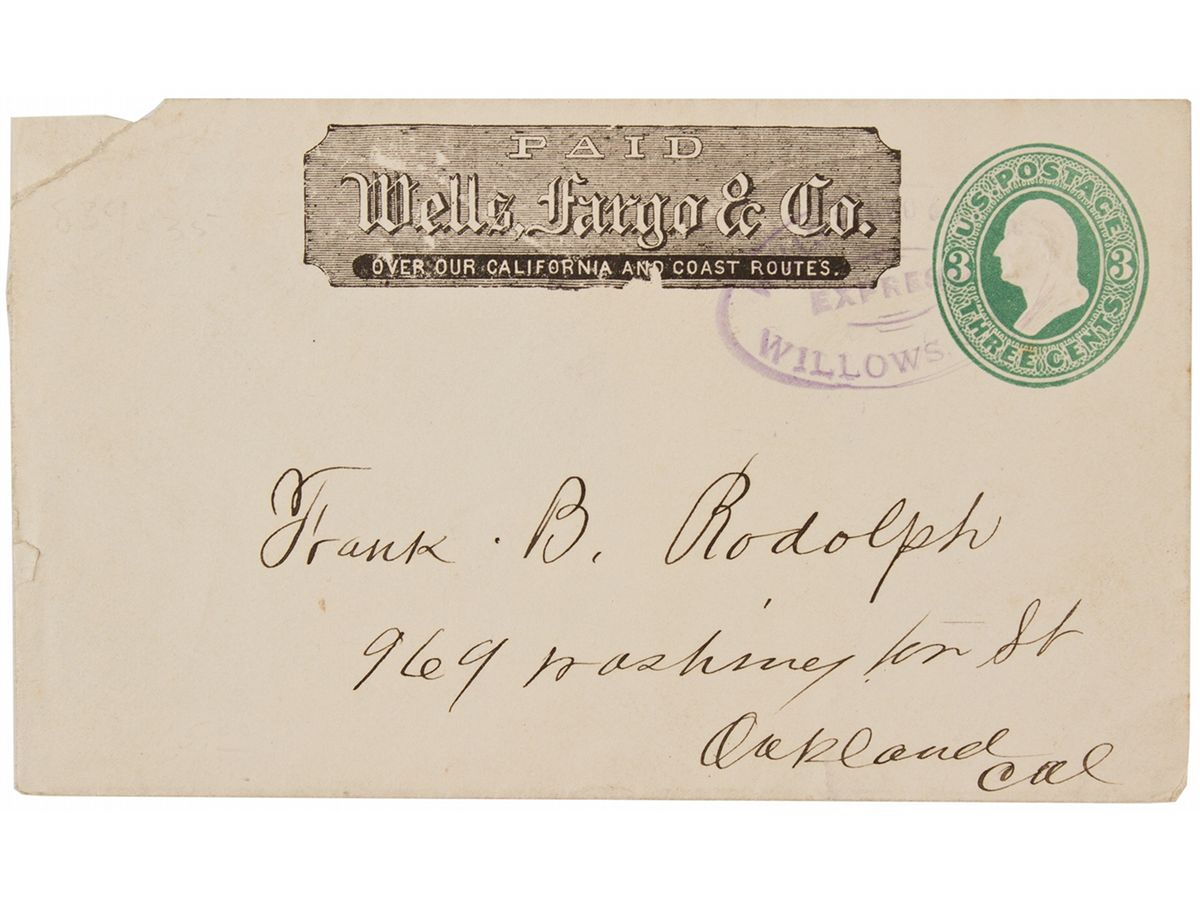 PAID
Wells, Fargo & Co.
OVER OUR CALIFORNIA AND COAST ROUTES.
U.S. POSTAGE
3 3
THREE CENTS
WILLOWS.
Frank . B. Rodolph
969 washington St
Oakland
Cal